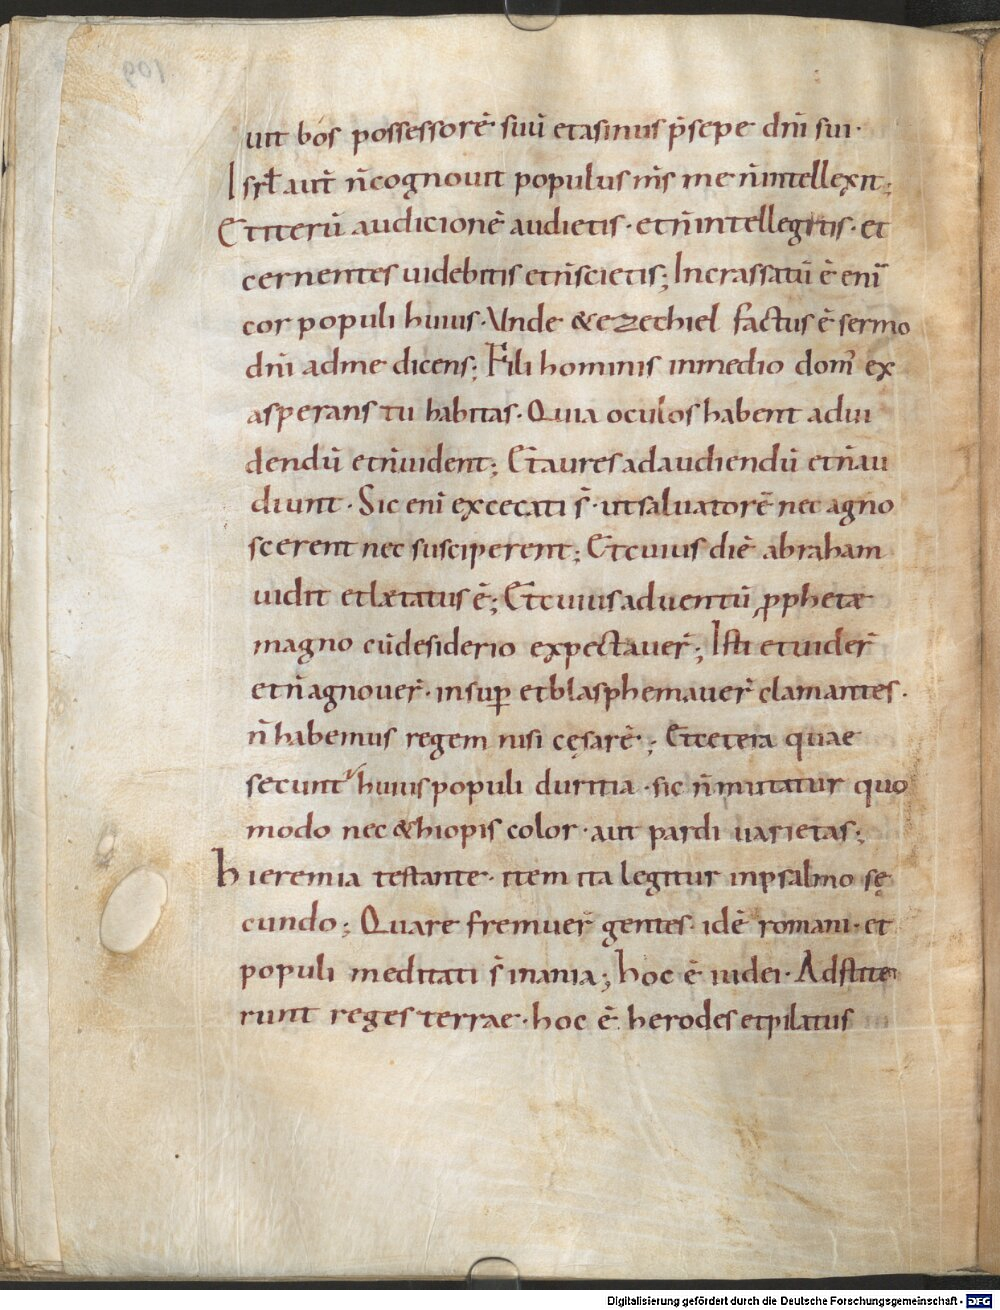 uit bos possessorē suū et asinus p̄sepe dn̄i sui·
Isrl̄ aut̄ n̄ cognouit populus m̄s me n̄ intellexit;
Et iterū audicionē audietis· et n̄ intellegitis· et
cernentes uidebitis et n̄ scietis; Incrassatū ē enī
cor populi huius· Unde & ezechiel factus ē sermo
dn̄i ad me dicens; Fili hominis in medio dom̄ ex
asperans tu habitas· Quia oculos habent ad ui
dendū et n̄ uident; Et aures ad audiendū et n̄ au
diunt· Sic enī excecati s̄· ut saluatorē nec agno
scerent nec susciperent; Et cuius diē abraham
uidit et lætatus ē; Et cuius aduentū ꝓphetæ
magno cū desiderio expectauer̄; Isti et uider̄
et n̄ agnouer̄· insuꝑ et blasphemauer̄ clamantes·
n̄ habemus regem nisi cęsarē; Et cetera quae
secuntur huius populi duritia· sic n̄ mutatur quo
modo nec &hiopis color· aut pardi uarietas;
hieremia testante· item ita legitur in psalmo sę
cundo; Quare fremuer̄ gentes· idē romani· et
populi meditati s̄ inania; hoc ē iudei· Adstite
runt reges terrae· hoc ē herodes et pilatus
109
Digitalisierung gefördert durch die Deutsche Forschungsgemeinschaft - DFG